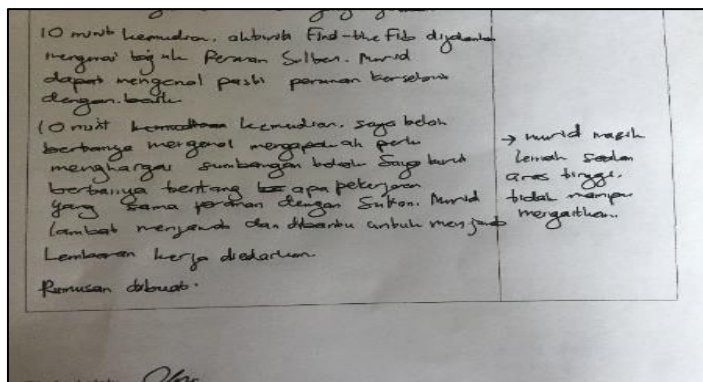 10 minit kemudian, aktiviti Find-the Fib dijalankan
mengenai tajuk Peranan Sultan. Murid
dapat mengenal pasti peranan tersebut
dengan baik.
10 minit kemudian kemudian, saya beloh
bertanya mengenai mengapakah perlu
menghargai sumbangan tokoh. Saya turut
bertanya tentang apa pekerjaan
yang sama peranan dengan Sultan. Murid
lambat menjawab dan dibantu untuk menjawab
Lembaran kerja diedarkan.
Rumusan dibuat.
→ murid masih
lemah soalan
aras tinggi.
tidak mampu
mengaitkan.